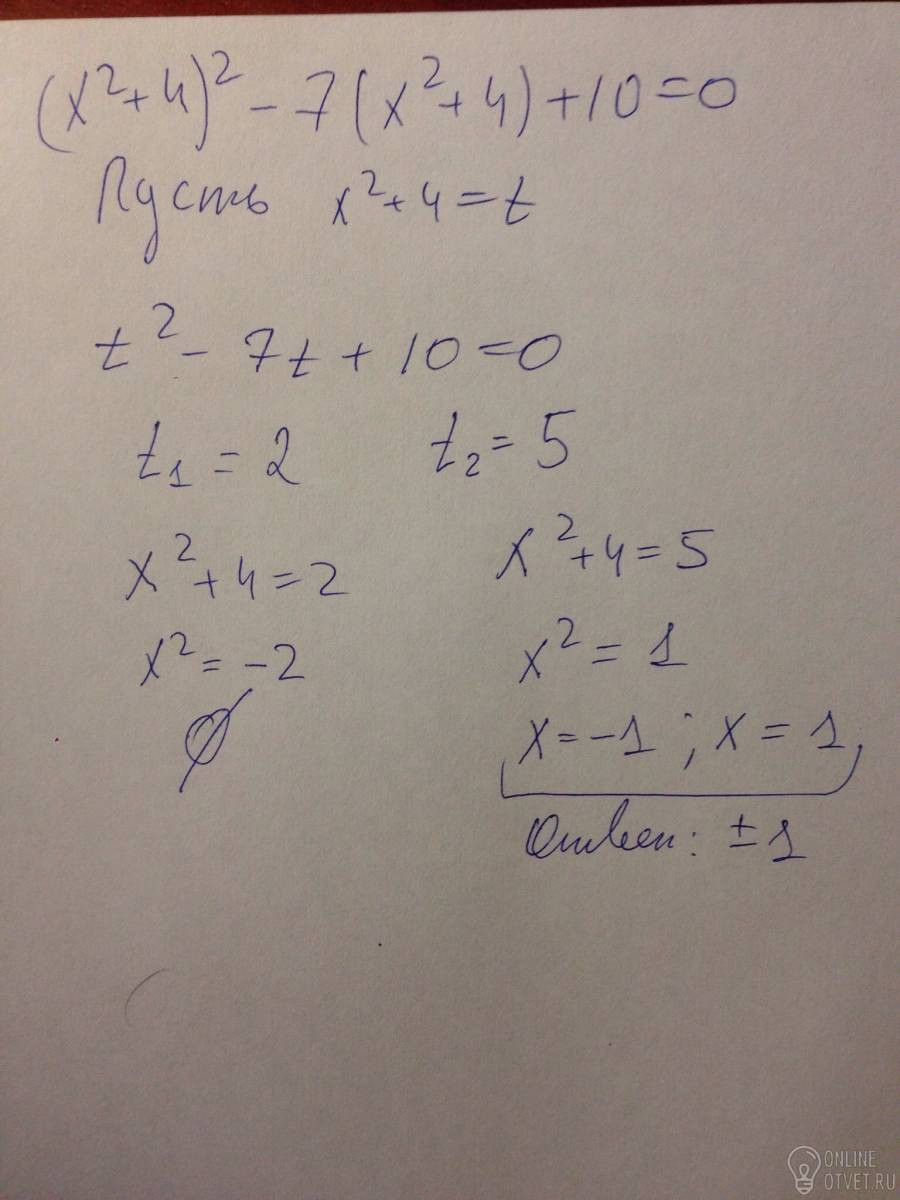 (x²+4)² - 7(x²+4)+10=0
Пусть x²+4=t
t² - 7t + 10=0
t₁ = 2 t₂= 5
x²+4=2 x²+4=5
x²= -2 x²= 1
∅ x= -1 ; x = 1
Ответ: ± 1
ONLINE
OTVET.RU